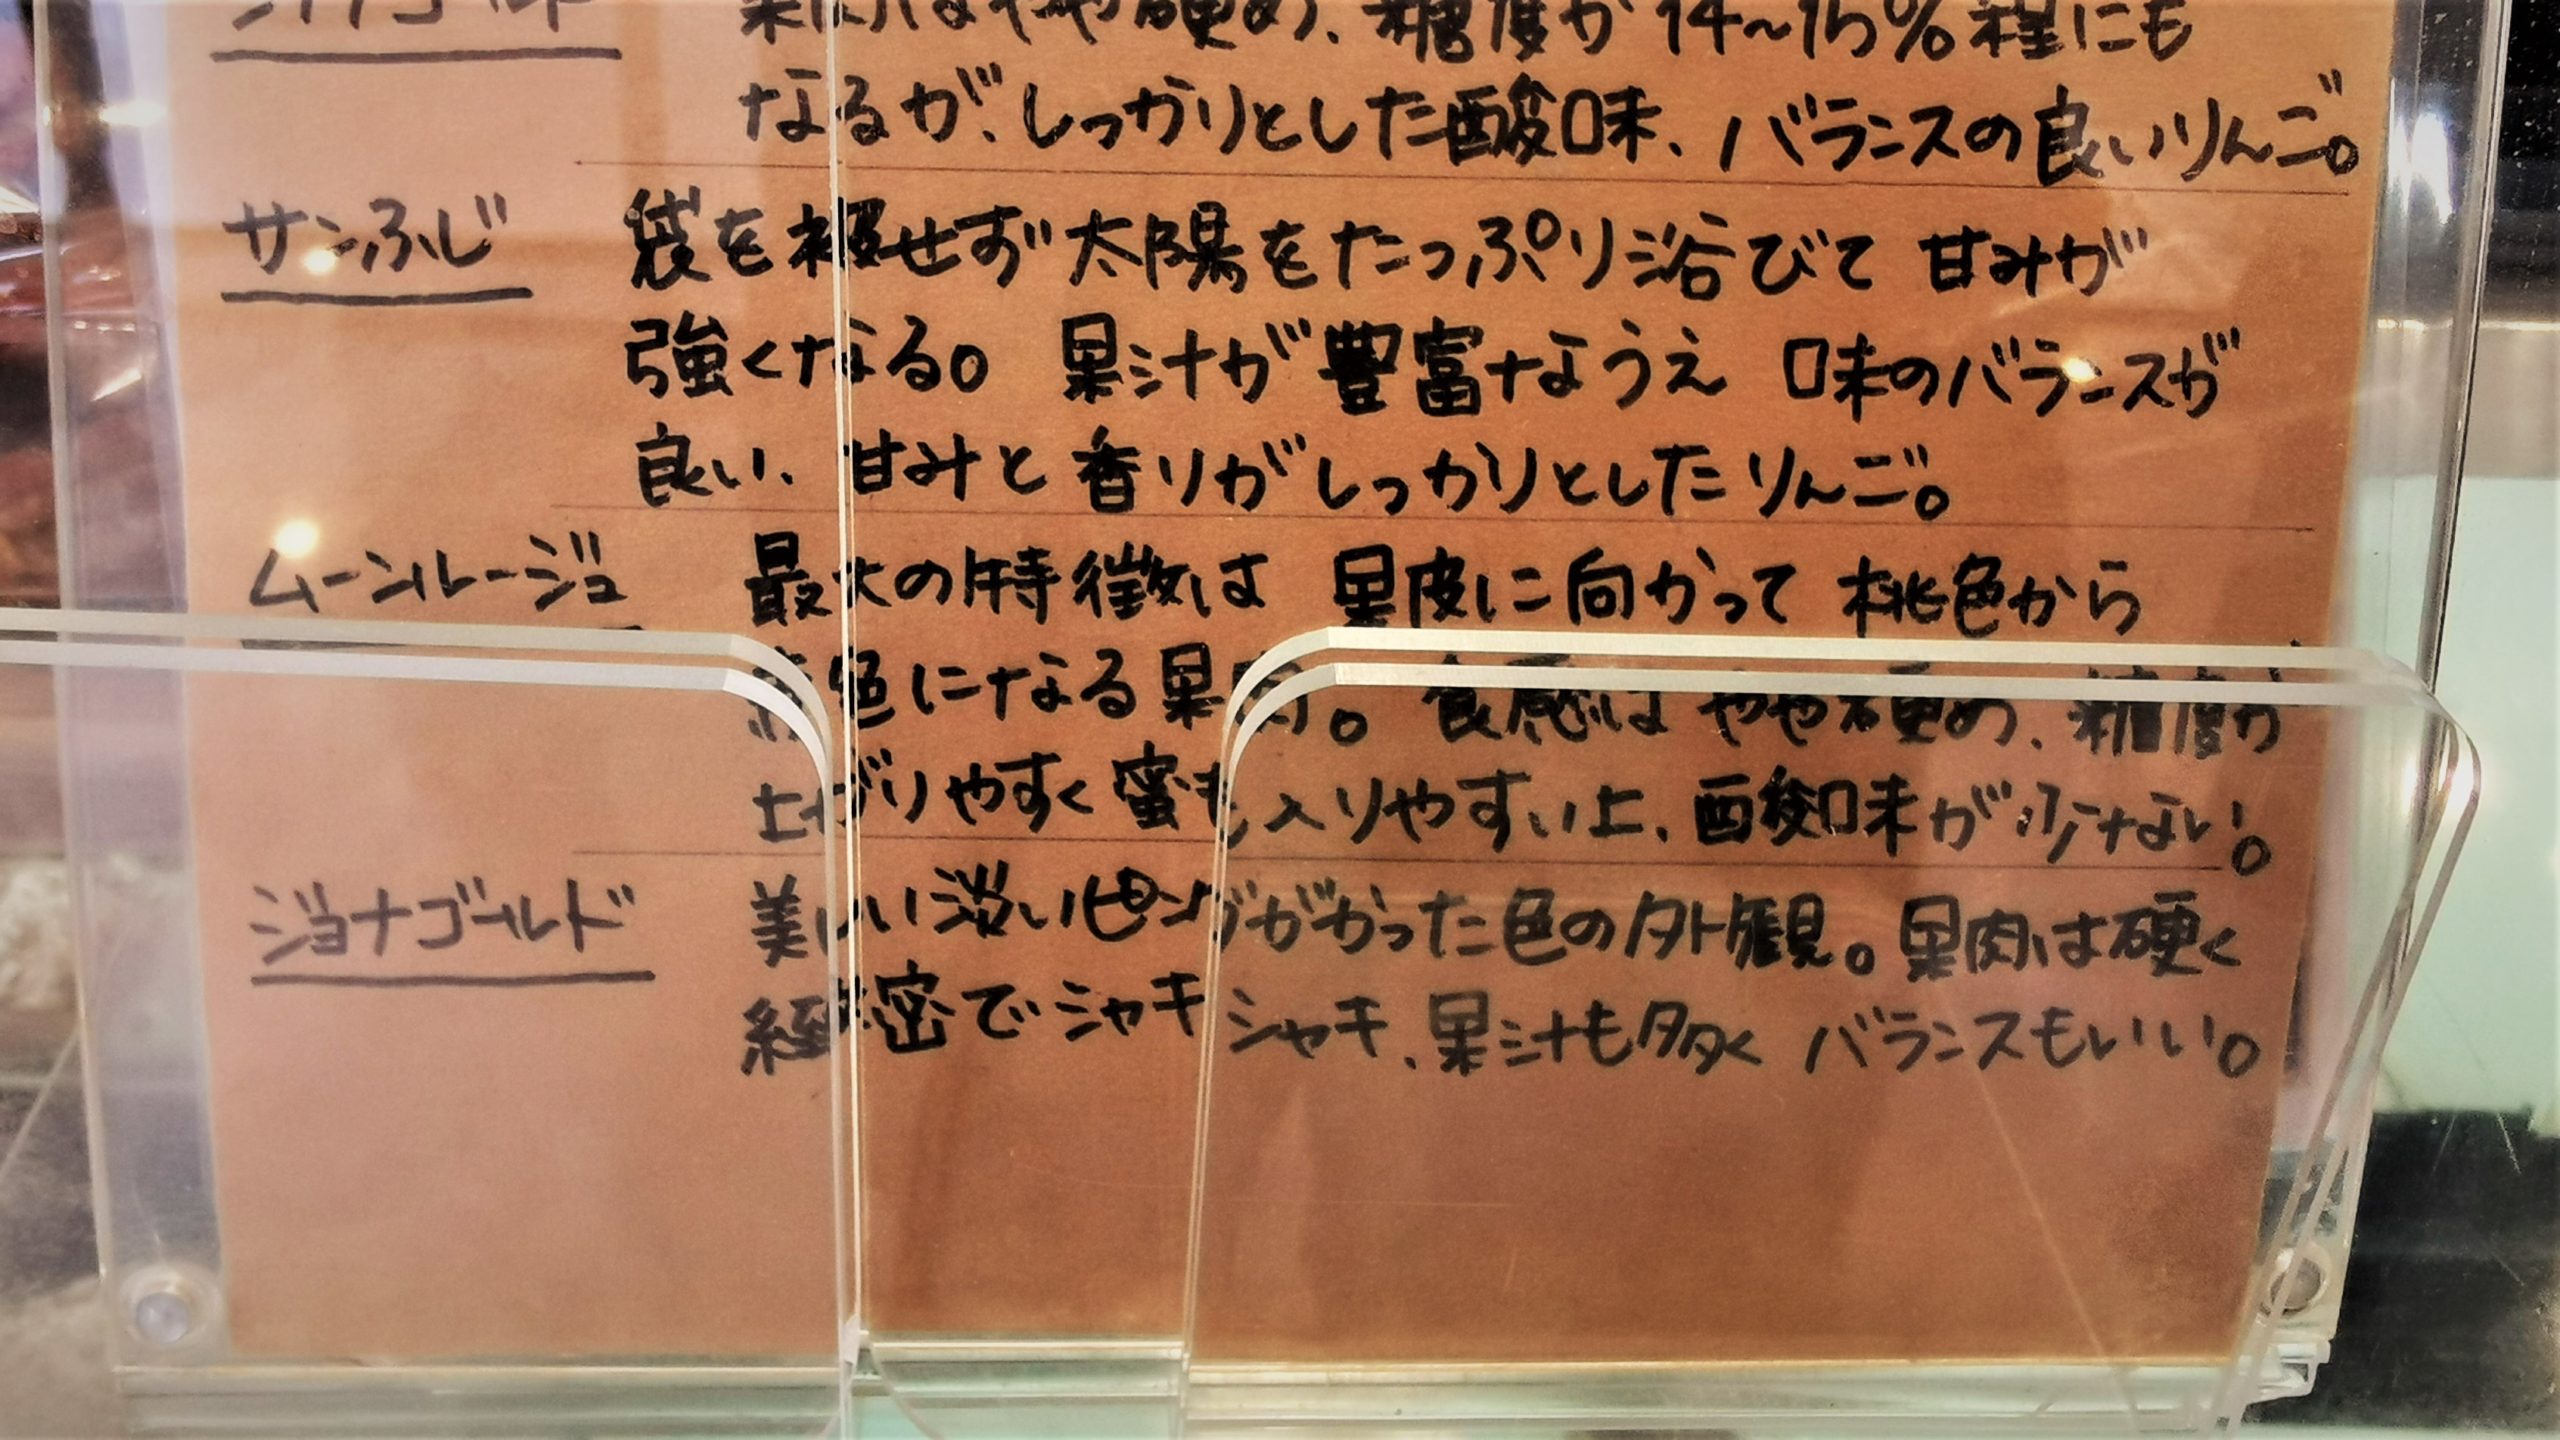 果肉はやや硬め、糖度が14~15%程にも
なるが、しっかりとした酸味、バランスの良いりんご。
サンふじ 袋を被せず太陽をたっぷり浴びて甘みが
強くなる。果汁が豊富なうえ 味のバランスが
良い、甘みと香りがしっかりとしたりんご。
ムーンルージュ 最大の特徴は 果皮に向かって桃色から
色になる果肉。食感はやや硬め、糖度が
上がりやすく蜜も入りやすい上、酸味が少ない。
ジョナゴールド 美しい淡いピンクがかった色の外観。果肉は硬く
緻密でシャキシャキ、果汁も多く バランスもいい。